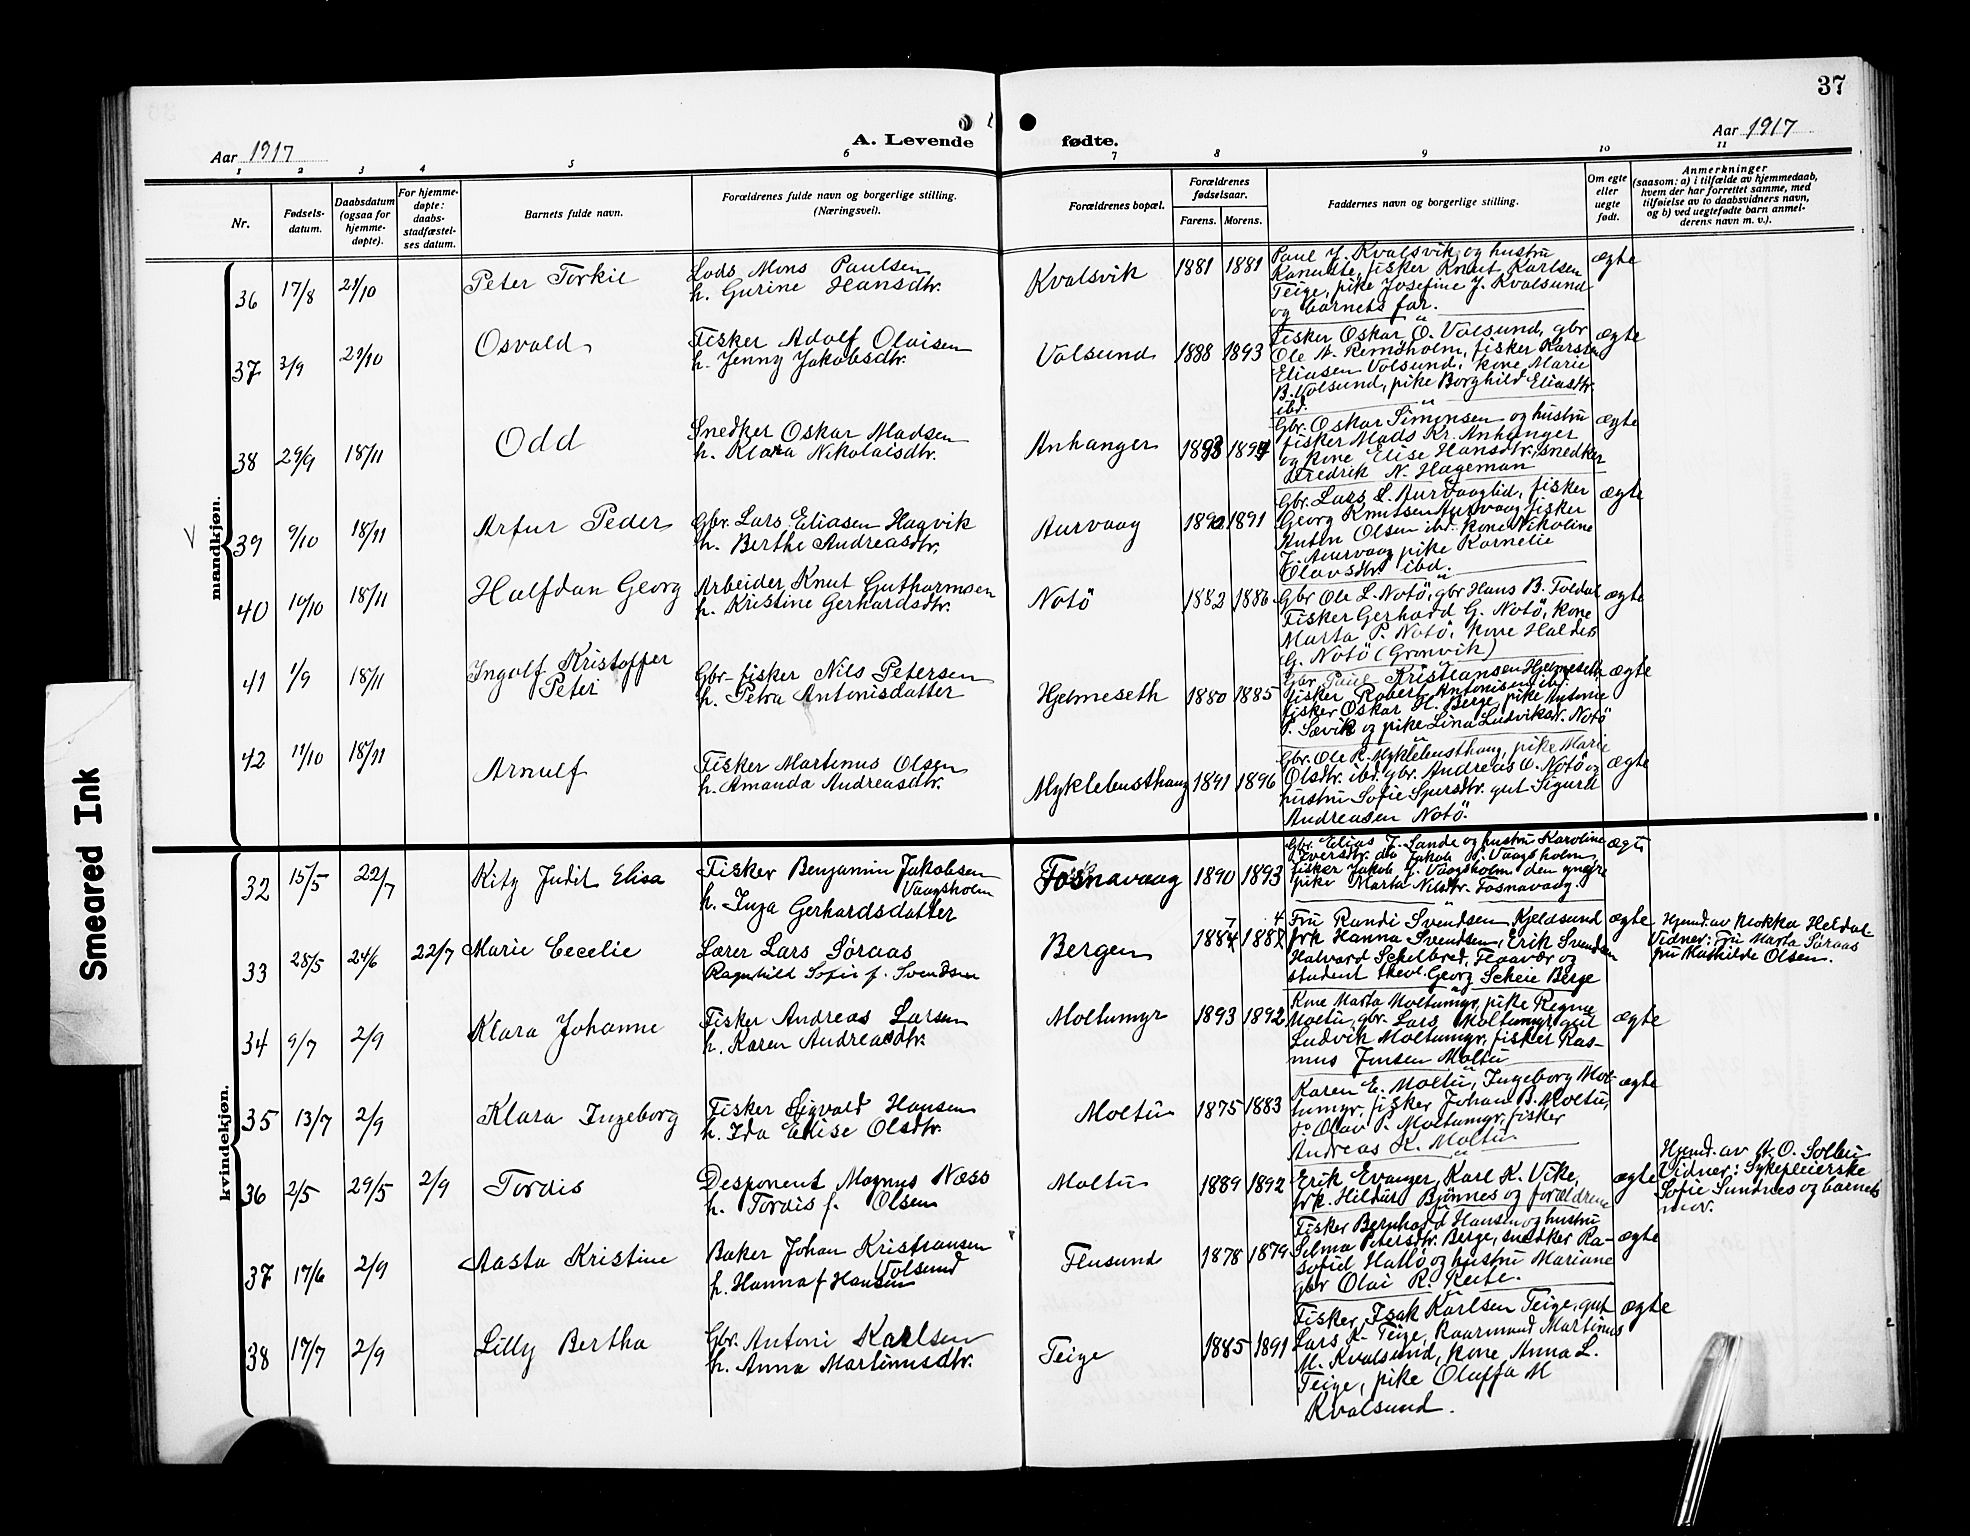 37
Aar 1917
A. Levende fødte.
Aar 1917
1 2 3 4 5 6 7 8 9 10 11
Nr.
Fødsels-
datum.
Daabsdatum
(ogsaa for
hjemme-
døpte).
For hjemme-
døpte:
daabs-
stadfæstel-
ses datum.
Barnets fulde navn.
Forældrenes fulde navn og borgerlige stilling.
(Næringsvei).
Forældrenes bopæl.
Forældrenes
fødselsaar.
Farens. Morens.
Faddernes navn og borgerlige stilling.
Om egte
eller
uegte
født.
Anmerkninger
(saasom: a) i tilfælde av hjemmedaab,
hvem der har forrettet samme, med
tilføielse av to daabsvidners navn,
og b) ved uegtefødte barn anmel-
derens navn m. v.).
mandkjøn.
36 17/8 21/10
Peter Torkil
Lods Mons Paulsen
h. Gurine Hansdtr.
Kvalsvik
1881 1881
Paul J. Kvalsvik og hustru
Kanutte, fisker Knut Karlsen
Teige, pike Josefine J. Kvalsund
og barnets far.
ægte
37 3/9 21/10
Osvald
Fisker Adolf Olaisen
h. Jenny Jakobsdtr.
Volsund
1888 1893
Fisker Oskar O. Volsund, gbr
Ole A. Remöholm, fisker Karsten
Eliasen Volsund, kone Marie
B. Volsund, pike Borghild Eliasdtr.
ibd.
ægte
38 29/9 18/11
Odd
Snedker Oskar Madsen
h. Klara Nikolaisdtr.
Anhanger
1893 1894
Gbr. Oskar Simonsen og hustru
fisker Mads Kr. Anhanger
og kone Elise Hansdtr., snedker
Fredrik N. Hageman
ægte
39 9/10 18/11
Artur Peder
Gbr. Lars Eliasen Hagvik
h. Berthe Andreasdtr.
Aurvaag
1890 1891
Gbr. Lars L. Aurvaaglid, fisker
Georg Knutsen Aurvaag fisker
Olsen ibd. kone Nikoline
J. Aurvaag pike Kornelie
Olavsdtr. ibd.
ægte
40 10/10 18/11
Halfdan Georg
Arbeider Knut Guthormsen
h. Kristine Gerhardsdtr.
Notö
1882 1886
Gbr Ole L. Notö, gbr Hans B. Foldal
Fisker Gerhard G. Notö, kone
Marta P. Notö, kone Haldis
G. Notö (Grönvik)
ægte
41 1/9 18/11
Ingolf Kristoffer
Peter
Gbr-fisker Nils Petersen
h. Petra Antonisdatter
Hjelmeseth
1880 1885
Gbr Paul Kristiansen Hjelmeseth
fisker Robert Antonisen ibd.
fisker Oskar H. Berge, pike Antonie
P. Sævik og pike Lina Ludviksdr. Notö
ægte
42 11/10 18/11
Arnulf
Fisker Martinus Olsen
h. Amanda Andreasdtr.
Myklebusthaug
1891 1896
Gbr. Ole R. Myklebusthaug, pike Marie
Olsdtr. ibd. gbr. Andreas O. Notö og
hustru Sofie gut Sigurd
Andreasen Notö.
ægte
kvindekjøn.
32 15/5 22/7
Kity Judit Elisa
Fisker Benjamin Jakobsen
Vaagsholm
h. Inga Gerhardsdatter
Fosnavaag
1890 1893
Gbr. Elias J. Sande og hustru Karoline
Iversdtr. do Jakob J. Vaagsholm,
fisker Jakob J. Vaagsholm den yngre
pike Marta Nilsdtr. Fosnavaag.
ægte
33 28/5 24/6 22/7
Marie Cecelie
Lærer Lars Søraas
Ragnhild Sofie f. Svendsen
Bergen
1887 1884
Fru Randi Svendsen, Kjeldsund
frk Hanna Svendsen, Erik Svendsen
Halvard Schelbred, Flaavær og
student theol. Georg Scheie Berge
ægte
Hjemd. av Mokka Heldal
Vidner: Fru Marta Søraas
fru Mathilde Olsen.
34 9/7 2/9
Klara Johanne
Fisker Andreas Larsen
h. Karen Andreasdtr.
Moltumyr
1893 1892
Kone Marta Moltumyr, pike Regine
Moltu, gbr. Lars Moltumyr, gut
Ludvik Moltumyr, fisker Ras-
mus Jensen Moltu
ægte
35 13/7 2/9
Klara Ingeborg
Fisker Sigvald Hansen
h. Ida Elise Olsdtr.
Moltu
1875 1883
Karen E. Moltu, Ingeborg Mol-
tumyr, fisker Johan B. Moltu,
do Olav P. Moltumyr, fisker
Andreas K. Moltu
ægte
36 2/5 29/5 2/9
Tordis
Desponent Magnus Næss
h. Tordis f. Olsen
Moltu
1889 1892
Erik Evanger, Karl K. Vike,
frk. Hildur Bjönnes og forældrene
ægte
Hjemd. av A. O. Solbu
Vidner: Sykepleierske
Sofie Sundnes og barnets
mor.
37 17/6 2/9
Aasta Kristine
Baker Johan Kristiansen
Volsund
h. Hanna f Hansen
Flusund
1878 1879
Fisker Bernhard Hansen og hustru
Selma Petersdtr. Berge, snedker Ra-
sofiel Hatlö og hustru Mariane
gbr Olai R. Reite.
ægte
38 17/7 2/9
Lilly Bertha
Gbr. Antoni Karlsen
h. Anna Martinusdtr.
Teige
1885 1891
Fisker Isak Karlsen Teige, gut
Lars K. Teige, Kaarmand Martinus
M. Kvalsund, kone Anna L.
Teige, pike Oluffa M
Kvalsund.
ægte
Smeared Ink